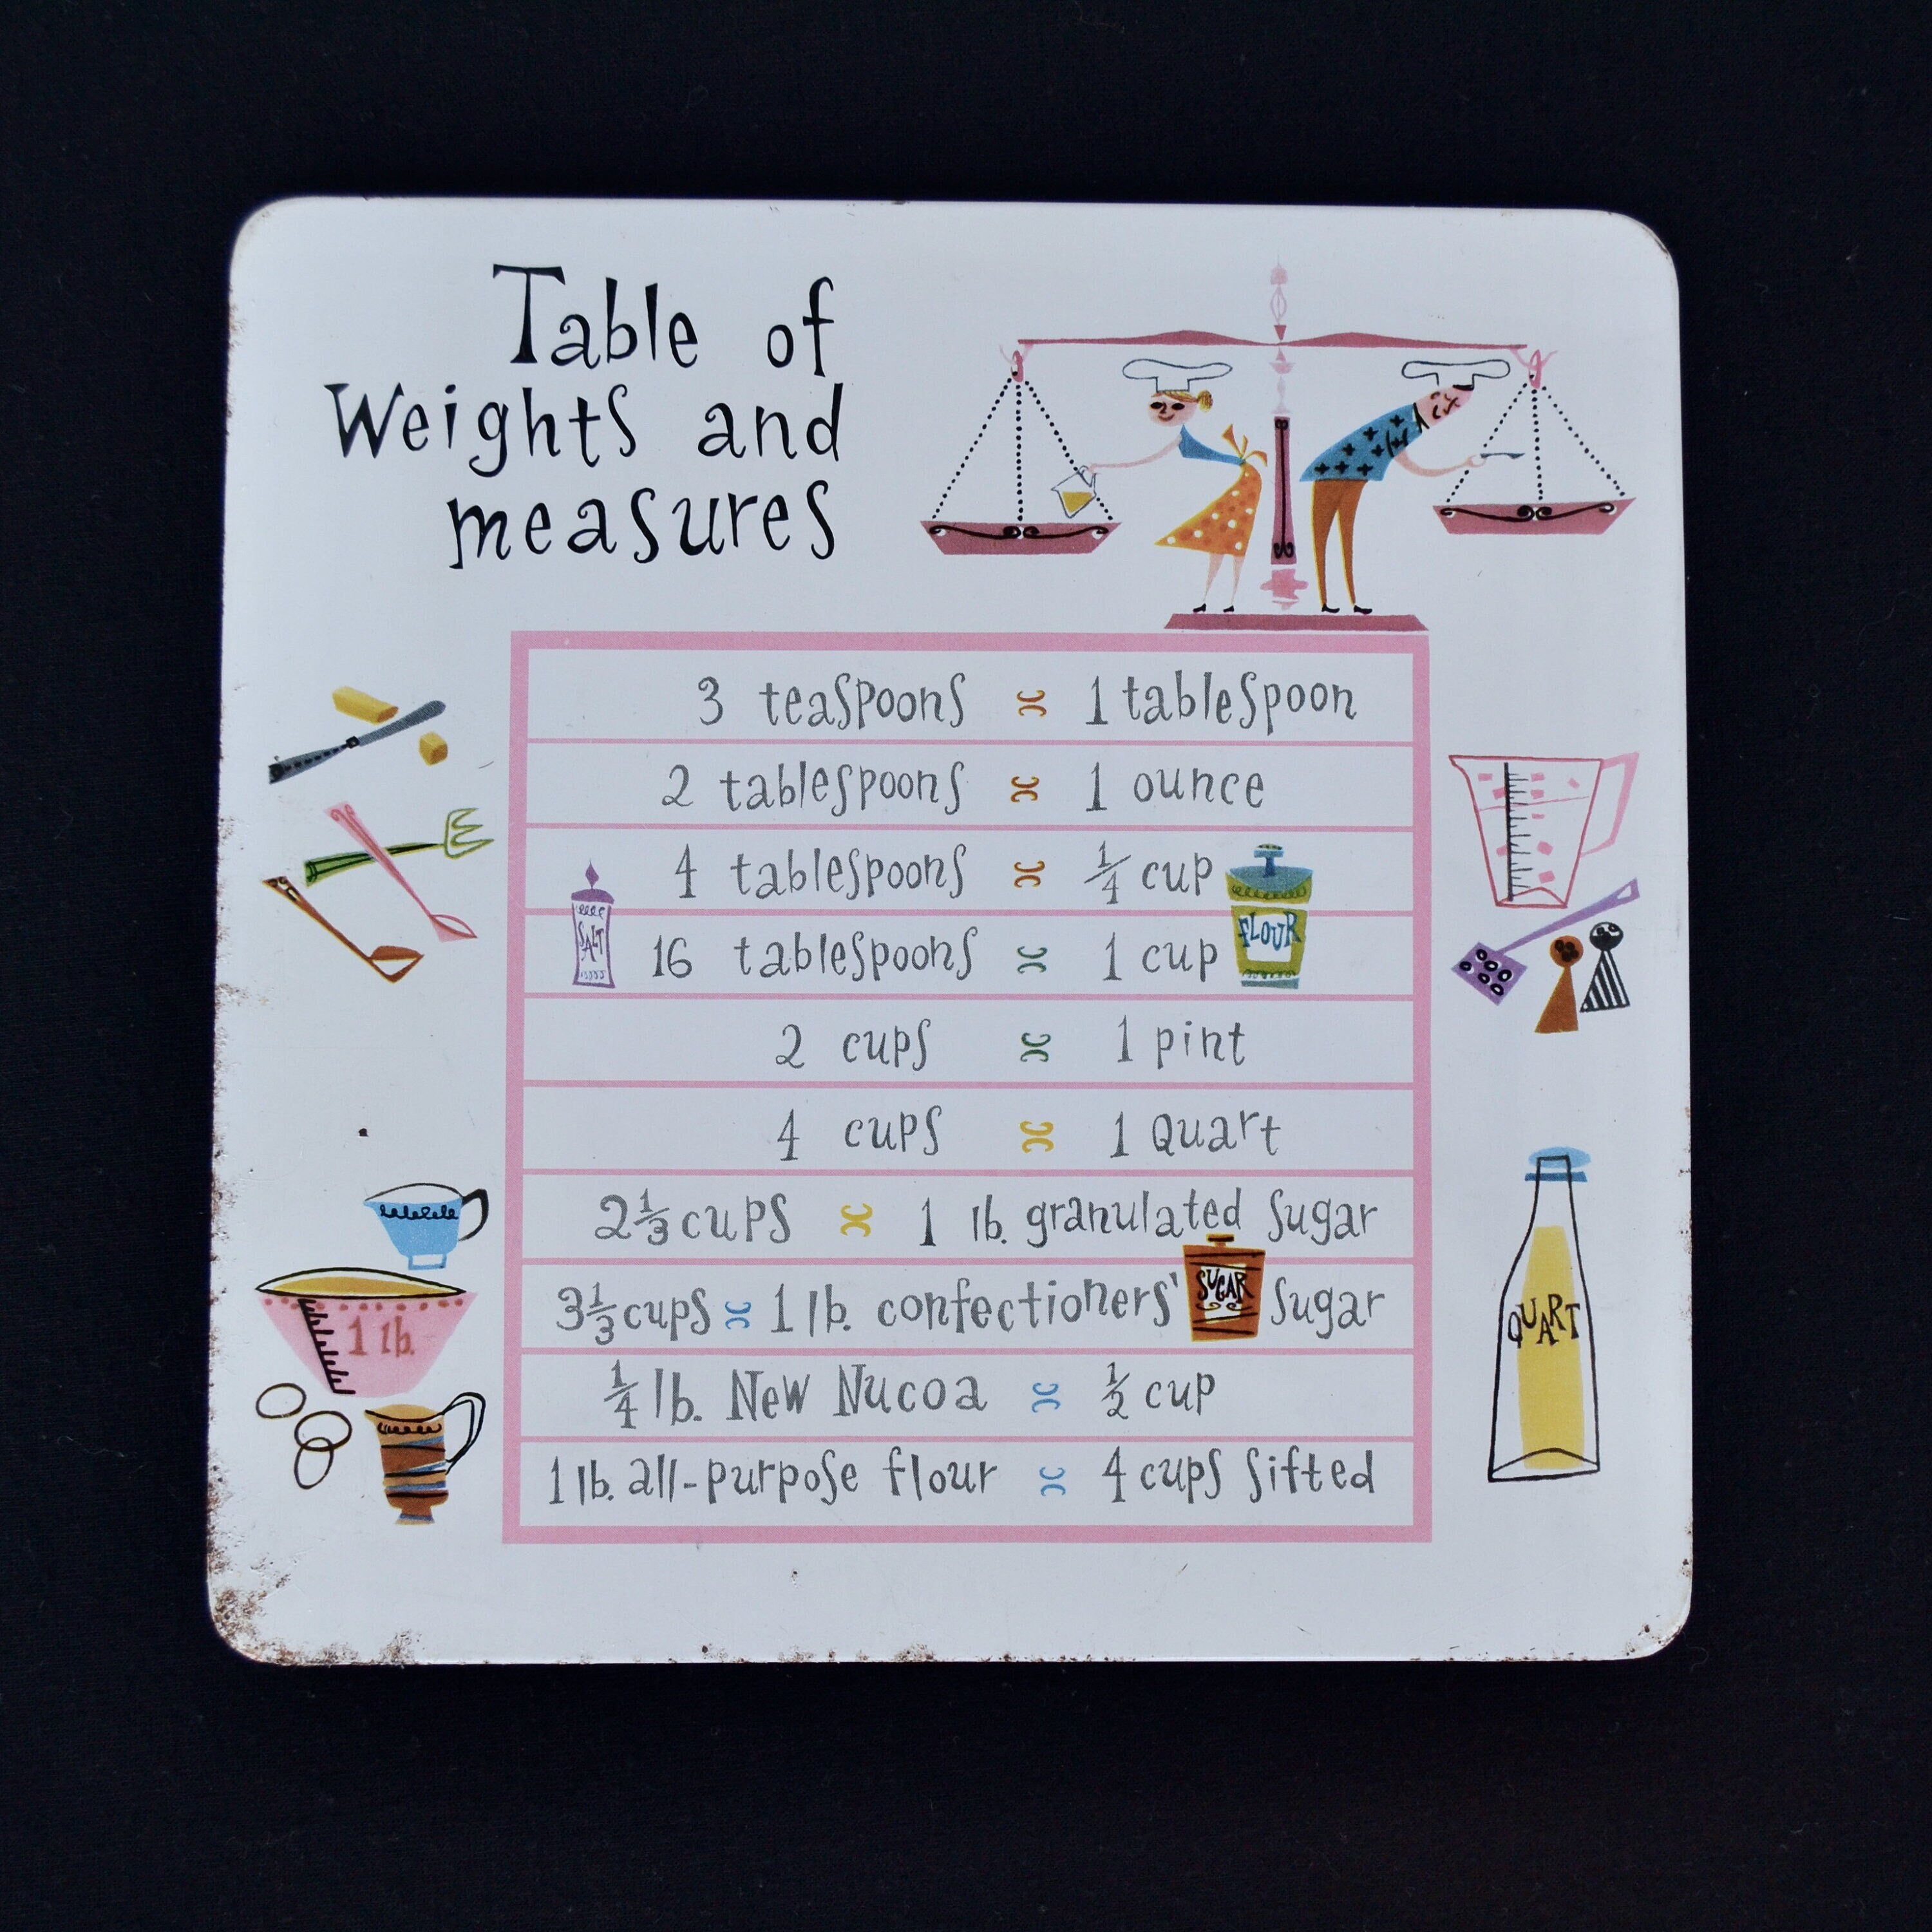 Table of
Weights and
measures
3 teaspoons = 1 tablespoon
2 tablespoons = 1 ounce
4 tablespoons = 1/4 cup
SALT
FLOUR
16 tablespoons = 1 cup
2 cups = 1 pint
4 cups = 1 Quart
2 1/3 cups = 1 lb. granulated Sugar
3 1/3 cups = 1 lb. confectioners' Sugar
SUGAR
1/4 lb. New Nucoa = 1/2 cup
1 lb. all-purpose flour = 4 cups Sifted
1 lb.
QUART